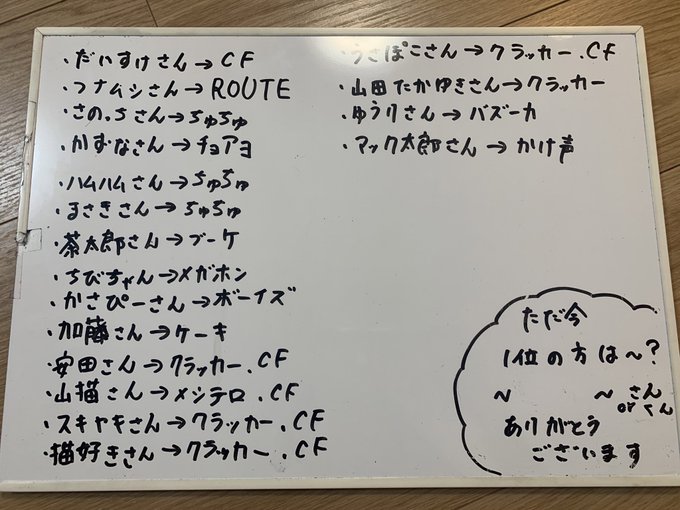 ・だいすけさん→CF
・フナムシさん→ROUTE
・さのっちさん→ちゅちゅ
・かずなさん→チョアヨ
・ハムハムさん→ちゅちゅ
・まさきさん→ちゅちゅ
・茶太郎さん→ブーケ
・ちびちゃん→メガホン
・かさぴーさん→ボーイズ
・加藤さん→ケーキ
・安田さん→クラッカー.CF
・山猫さん→メシテロ.CF
・スキヤキさん→クラッカー.CF
・猫好きさん→クラッカー.CF
・うさぽこさん→クラッカー.CF
・山田たかゆきさん→クラッカー
・ゆうりさん→バズーカ
・マック太郎さん→かけ声
ただ今
1位の方は~?
~ ~さん
orくん
ありがとう
ございます